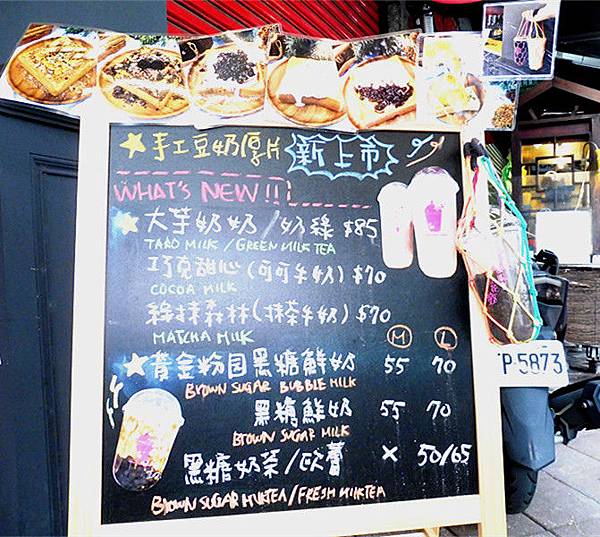 手工豆奶厚片 新上市
WHAT'S NEW!!
大芋奶奶/奶綠 $85
TARO MILK / GREEN MILK TEA
巧克甜心(可可牛奶) $70
COCOA MILK
綠抹森林(抹茶牛奶) $70
MATCHA MILK
M L
黃金粉圓黑糖鮮奶 55 70
BROWN SUGAR BUBBLE MILK
黑糖鮮奶 55 70
BROWN SUGAR MILK
黑糖奶茶/歐蕾 × 50/65
BROWN SUGAR MILKTEA / FRESH MILKTEA
P-5873